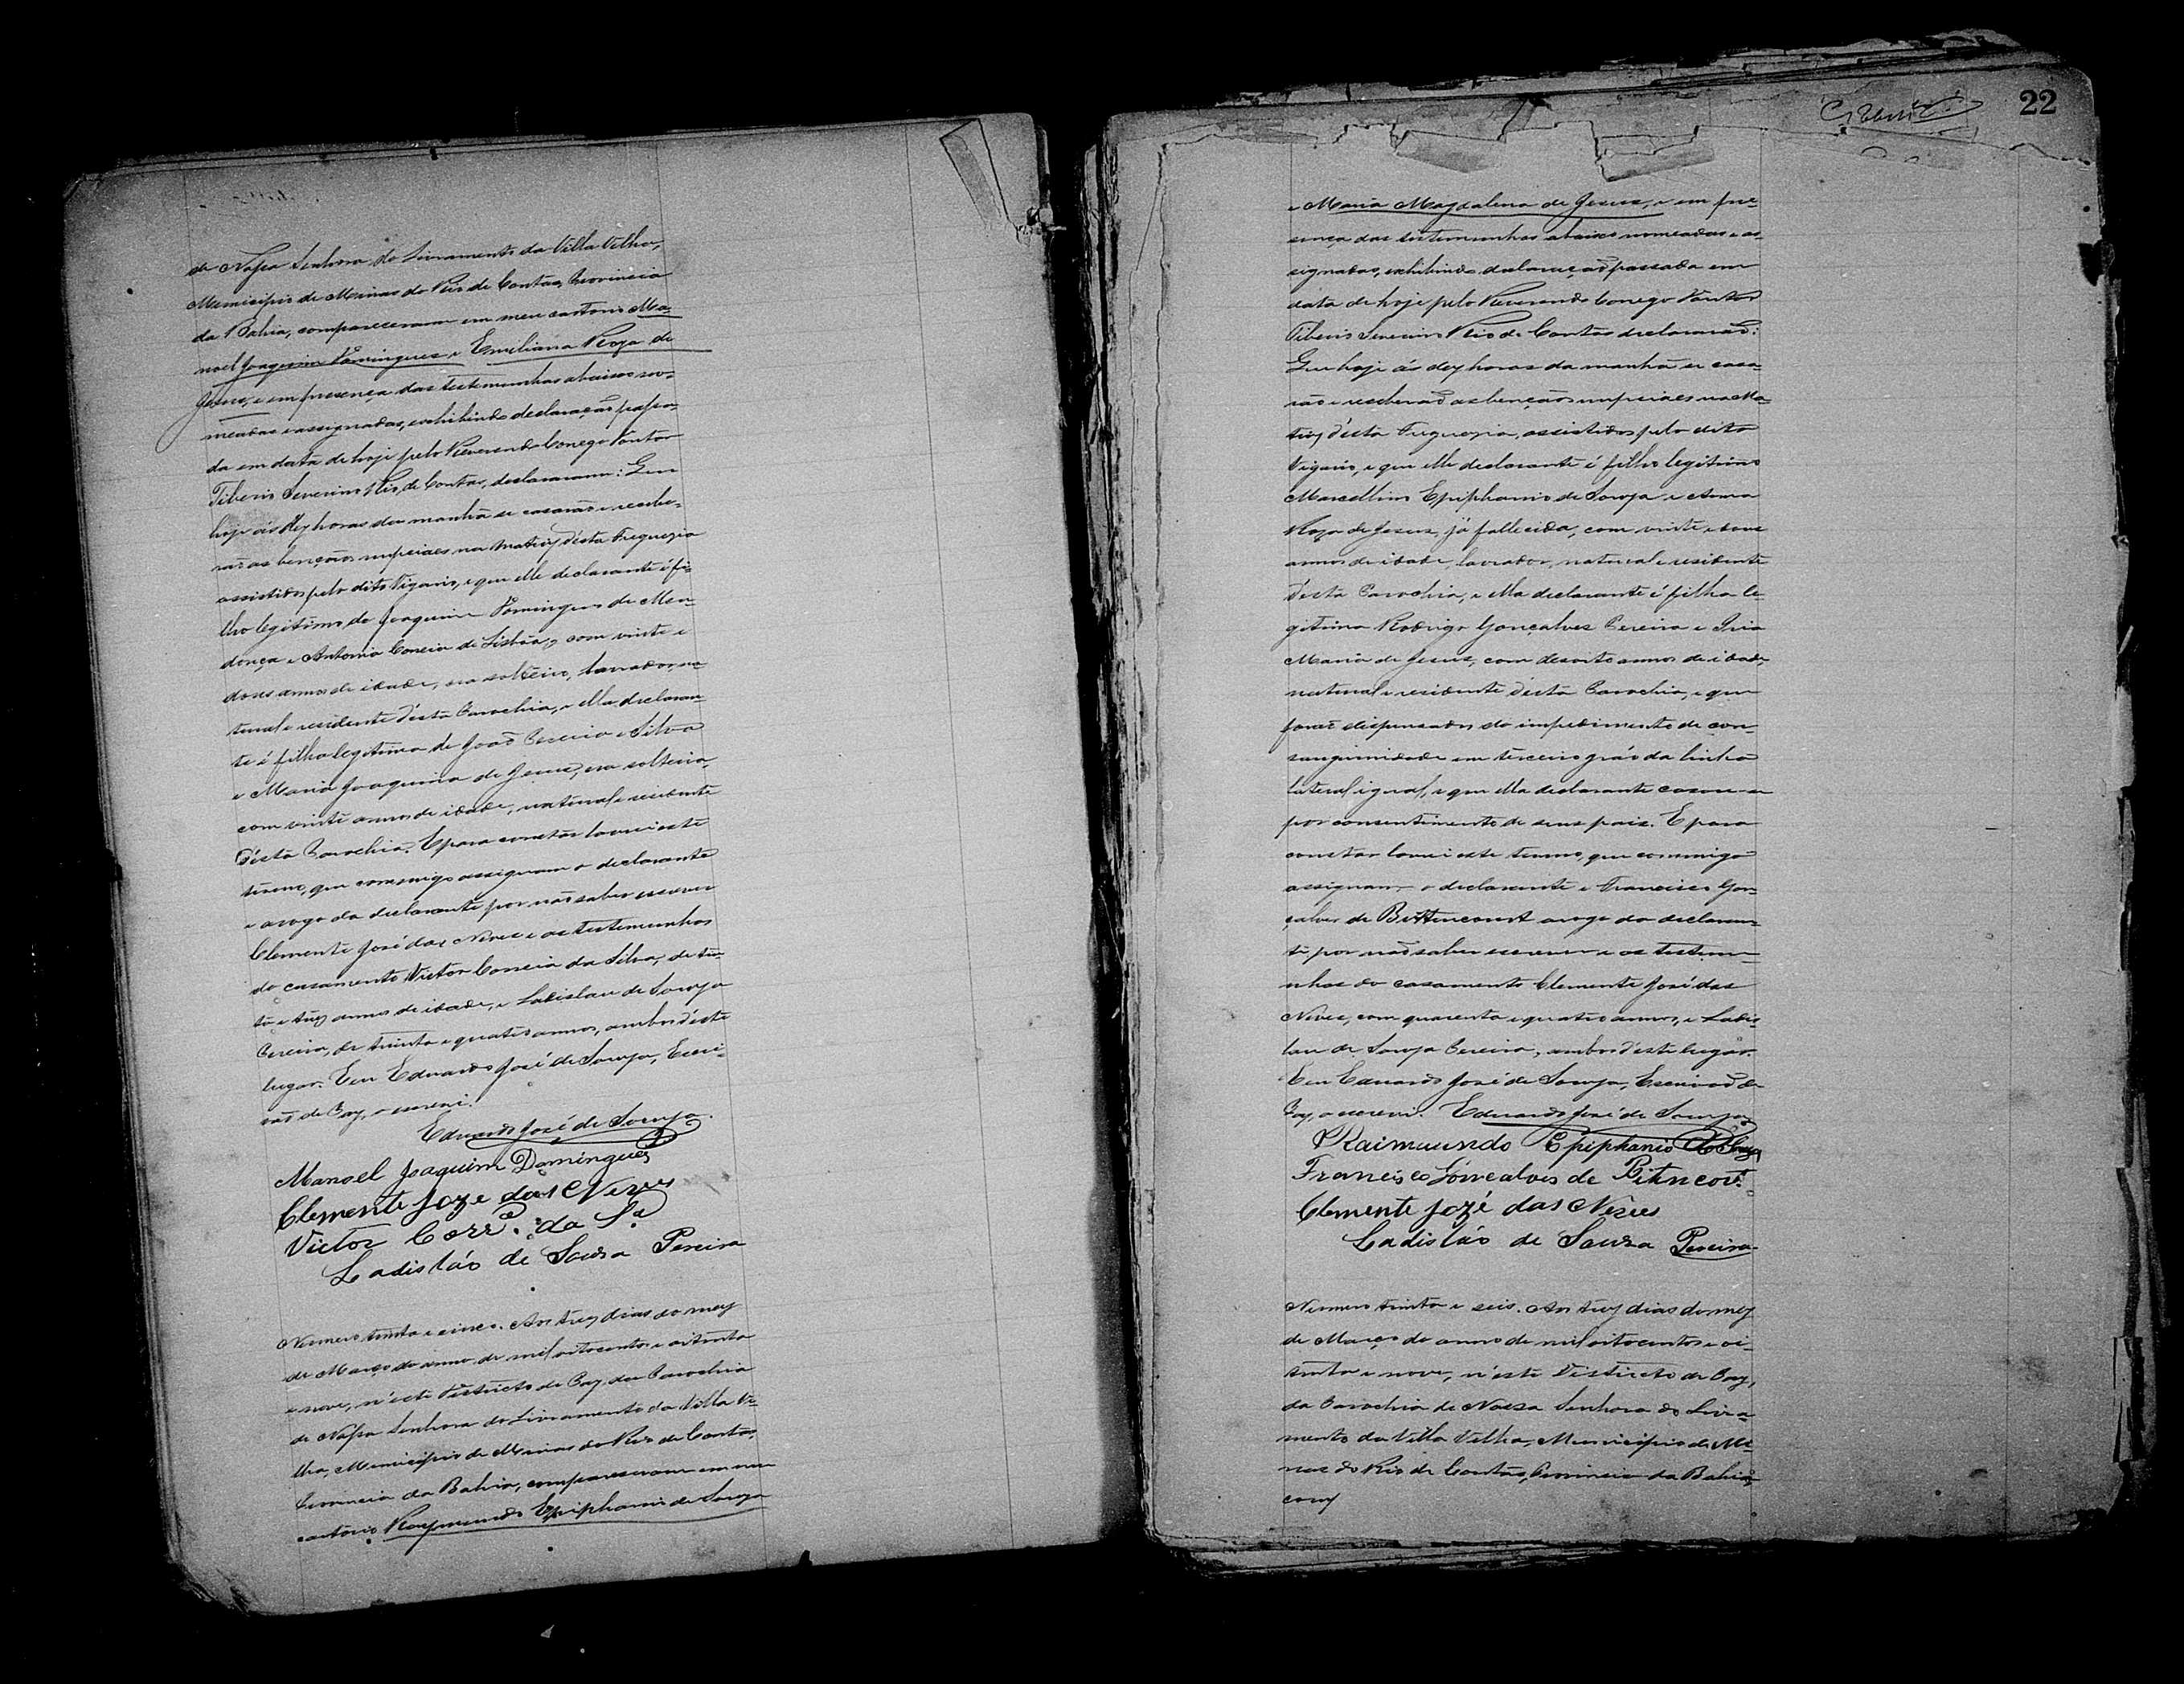 de Nossa Senhora do Livramento da Villa Velha,
Municipio de Minas do Rio de Contas, Provincia
da Bahia, compareceram em meu cartorio Ma-
noel Joaquim Domingues e Emiliana Roza de
Jesus, e em presença das testemunhas abaixo no-
meadas e assignadas, exhibindo declaração passa-
da em data de hoje pelo Reverendo Conego Doutor
Tiberio Severino Rio de Contas, declararam: Que
hoje ás dez horas da manhã se casarão e recebe-
rão as bençãos nupciaes na Matriz d'esta Freguezia
assistidos pelo dito Vigario, e que elle declarante é fi-
lho legitimo de Joaquim Domingues de Men-
donça e Antonia Correia de Lisbôa, com vinte e
dous annos de idade, era solteiro, lavrador, na-
tural e residente d'esta Parochia, e ella declaran-
te é filha legitima de João Pereira e Silva
e Maria Joaquina de Jesus, era solteira,
com vinte annos de idade, natural e residente
d'esta Parochia. E para constar lavrei este
termo, que commigo assignam o declarante
e a rogo da declarante por não saber escrever
Clemente José das Neves e as testemunhas
do casamento Victor Correia da Silva, de trin-
ta e trez annos de idade, e Ladislau de Souza
Pereira, de trinta e quatro annos, ambos d'este
lugar. Eu Eduardo José de Souza, Escri-
vão de Paz, o escrevi.
Eduardo José de Souza.
Manoel Joaquim Domingues
Clemente Joze das Neves
Victor Corr.ª da S.ª
Ladisláo de Souza Pereira
Numero trinta e cinco. Aos trez dias do mez
de Março do anno de mil oitocentos e oitenta
e nove, n'este Districto de Paz da Parochia
de Nossa Senhora do Livramento da Villa Ve-
lha, Municipio de Minas do Rio de Contas,
Provincia da Bahia, compareceram em meu
cartorio Raymundo Epiphanio de Souza
22
e Maria Magdalena de Jesus, e em pre-
sença das testemunhas abaixo nomeadas e as-
signadas, exhibindo declaração passada em
data de hoje pelo Reverendo Conego Doutor
Tiberio Severino Rio de Contas declararão:
Que hoje ás dez horas da manhã se casa-
rão e receberão as bençãos nupciaes na Ma-
triz d'esta Freguezia, assistidos pelo dito
Vigario, e que elle declarante é filho legitimo
Marcellino Epiphanio de Souza e Anna
Roza de Jesus, já fallecida, com vinte e dous
annos de idade, lavrador, natural e residente
d'esta Parochia, e ella declarante é filha le-
gitima Rodrigo Gonçalves Pereira e Iria
Maria de Jesus, com desoito annos de idade,
natural e residente d'esta Parochia, e que
forão dispensados do impedimento de con-
sanguinidade em terceiro gráo da linha
lateral igual, e que ella declarante casou-se
por consentimento de seus pais. E para
constar lavrei este termo, que commigo
assignam o declarante e Francisco Gon-
çalves de Bittencourt a rogo da declaran-
te por não saber escrever e as testemu-
nhas do casamento Clemente José das
Neves, com quarenta e quatro annos, e Ladis-
lau de Souza Pereira, ambos d'este lugar.
Eu Eduardo José de Souza, Escrivão de
Paz, o escrevi. Eduardo José de Souza
Raimuundo Epiphanio de Souza
Francisco Gonçalves de Bitencou.t
Clemente Jozé das Neves
Ladisláo de Souza Pereira
Numero trinta e seis. Aos trez dias do mez
de Março do anno de mil oitocentos e oi-
tenta e nove, n'este Districto de Paz,
da Parochia de Nossa Senhora do Livra-
mento da Villa Velha, Municipio de Mi-
nas do Rio de Contas, Provincia da Bahia,
com